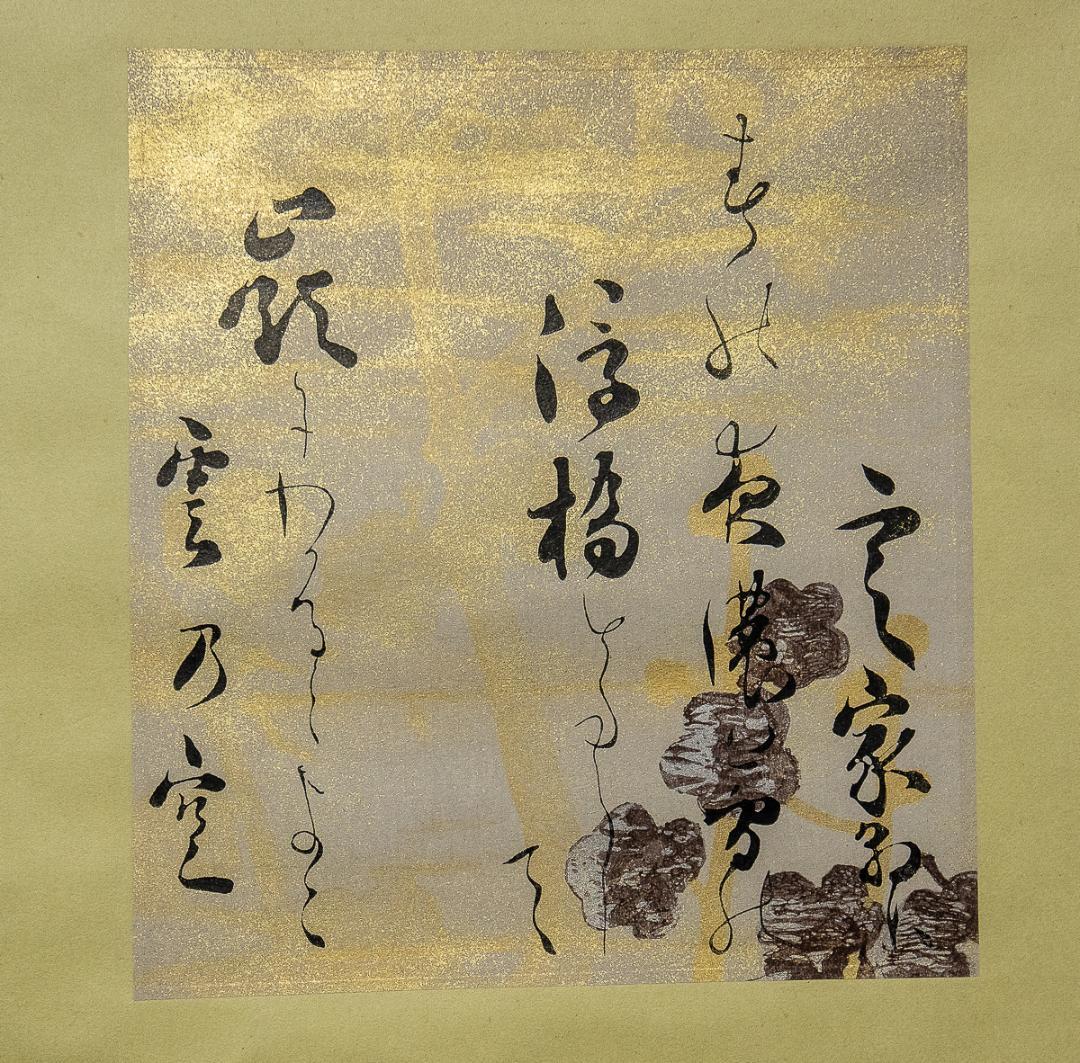 定家朝臣
春の夜濃夢の
浮橋とたえし
て
嶺にわかるゝよこ
雲乃空